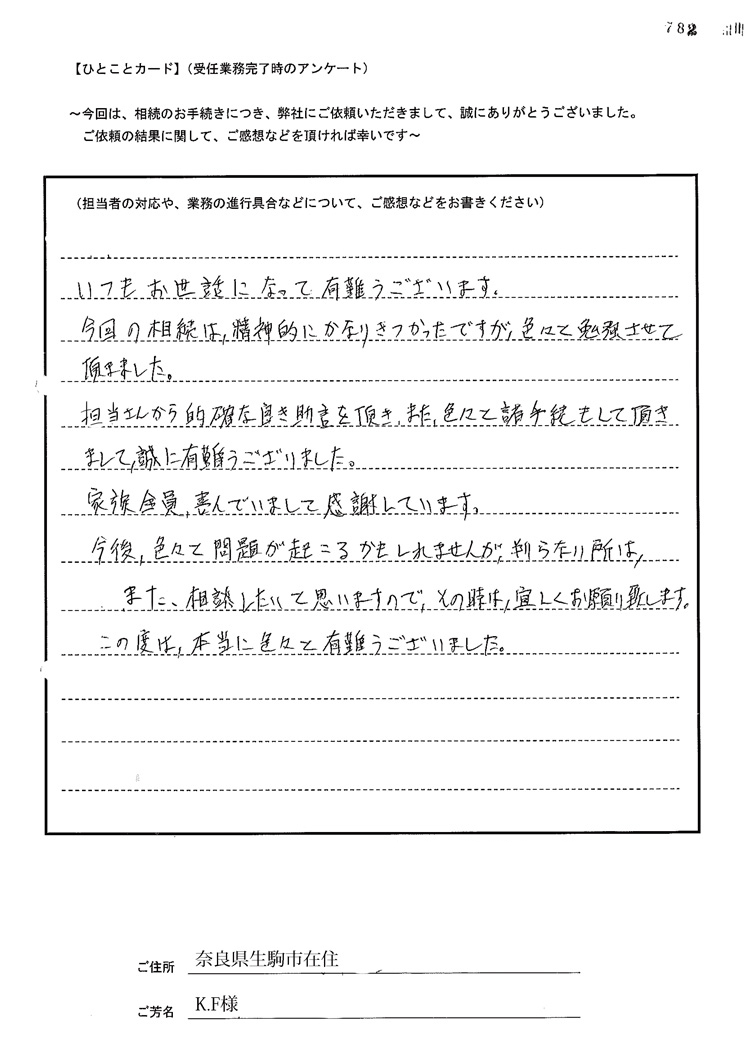 782
【ひとことカード】（受任業務完了時のアンケート）
～今回は、相続のお手続きにつき、弊社にご依頼いただきまして、誠にありがとうございました。
ご依頼の結果に関して、ご感想などを頂ければ幸いです～
（担当者の対応や、業務の進行具合などについて、ご感想などをお書きください）
いつもお世話になって有難うございます。
今回の相続は、精神的にかなりきつかったですが、色々と勉強させて
頂きました。
担当さんから的確な良き助言を頂き、また、色々と諸手続もして頂き
まして、誠に有難うございました。
家族全員、喜んでいまして感謝しています。
今後、色々と問題が起こるかもしれませんが、判らない所は、
また、相談したいと思いますので、その時は、宜しくお願い致します。
この度は、本当に色々と有難うございました。
ご住所 奈良県生駒市在住
ご芳名 K.F様